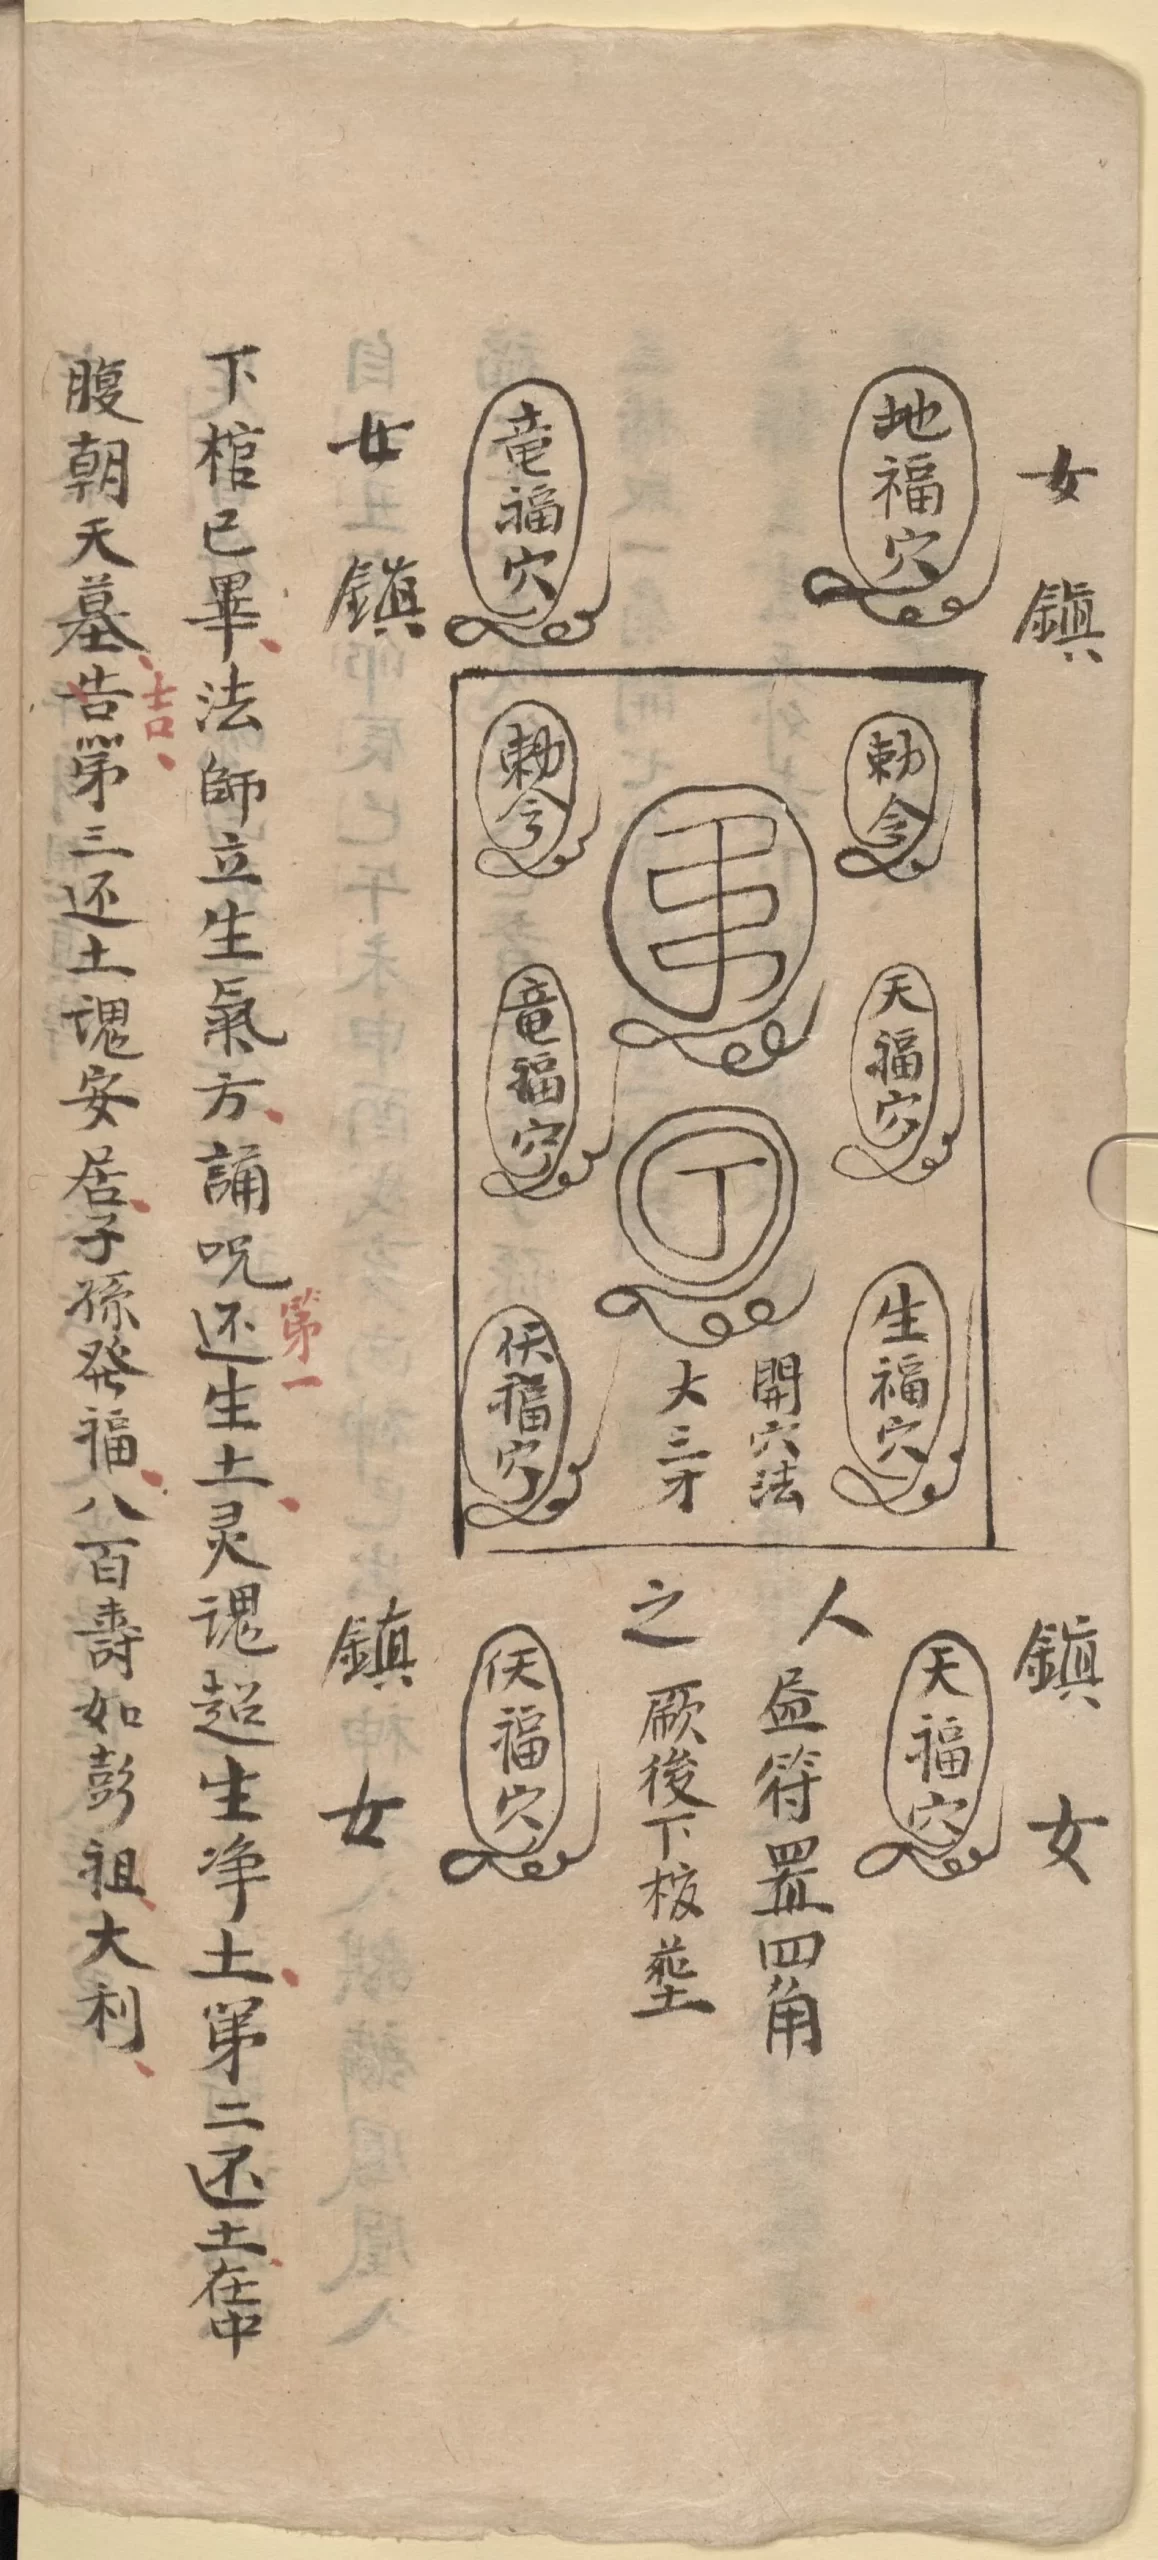 女鎮
鎮女
地福穴
天福穴
勅令
天福穴
生福穴
人
益符置四角
開穴法
大三才
之
厥後下
丁
竜福穴
勅令
竜福穴
伏福穴
伏福穴
女鎮
鎮女
下棺已畢法師立生氣方誦呪还生土灵魂超生净土第二还土在中
第一
腹朝天墓告第三还土魂安居子孫發福八百壽如彭祖大利
吉